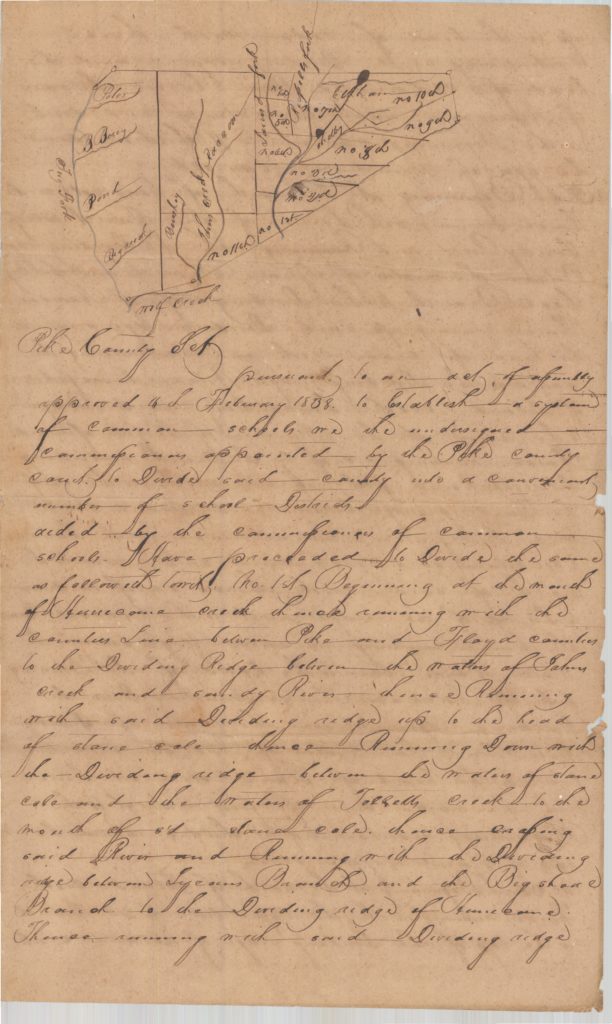 Peter
B Bowy
Pond
Tug Fork
Wolf Creek
no 1st
no 2d
no 3d
no 5th
no 6th
no 7th
no 8th
no 9th
no 10th
no 11th
Pike County Sct
pursuant to an act of assembly
approved 16th February 1838. to Establish a system
of common schools we the undersigned
Commissioners appointed by the Pike county
court to Divide said county into a convenient
number of school Districts
aided by the commissioners of common
schools. Have proceeded to Divide the same
as followeth towit, No. 1st, Beginning at the mouth
of Hurrecane creek thence running with the
counties Line between Pike and Floyd counties
to the Dividing Ridge between the waters of Johns
creek and sandy River thence Running
with said Dividing ridge up to the head
of stone cole thence Running Down with
the Dividing ridge between the waters of stone
cole and the waters of creek to the
mouth of sd stone cole. thence crossing
said River and Running with the Dividing
ridge between Lycans Branch and the Big shoal
Branch to the Dividing ridge of Hurrecane.
Thence running with said Dividing ridge